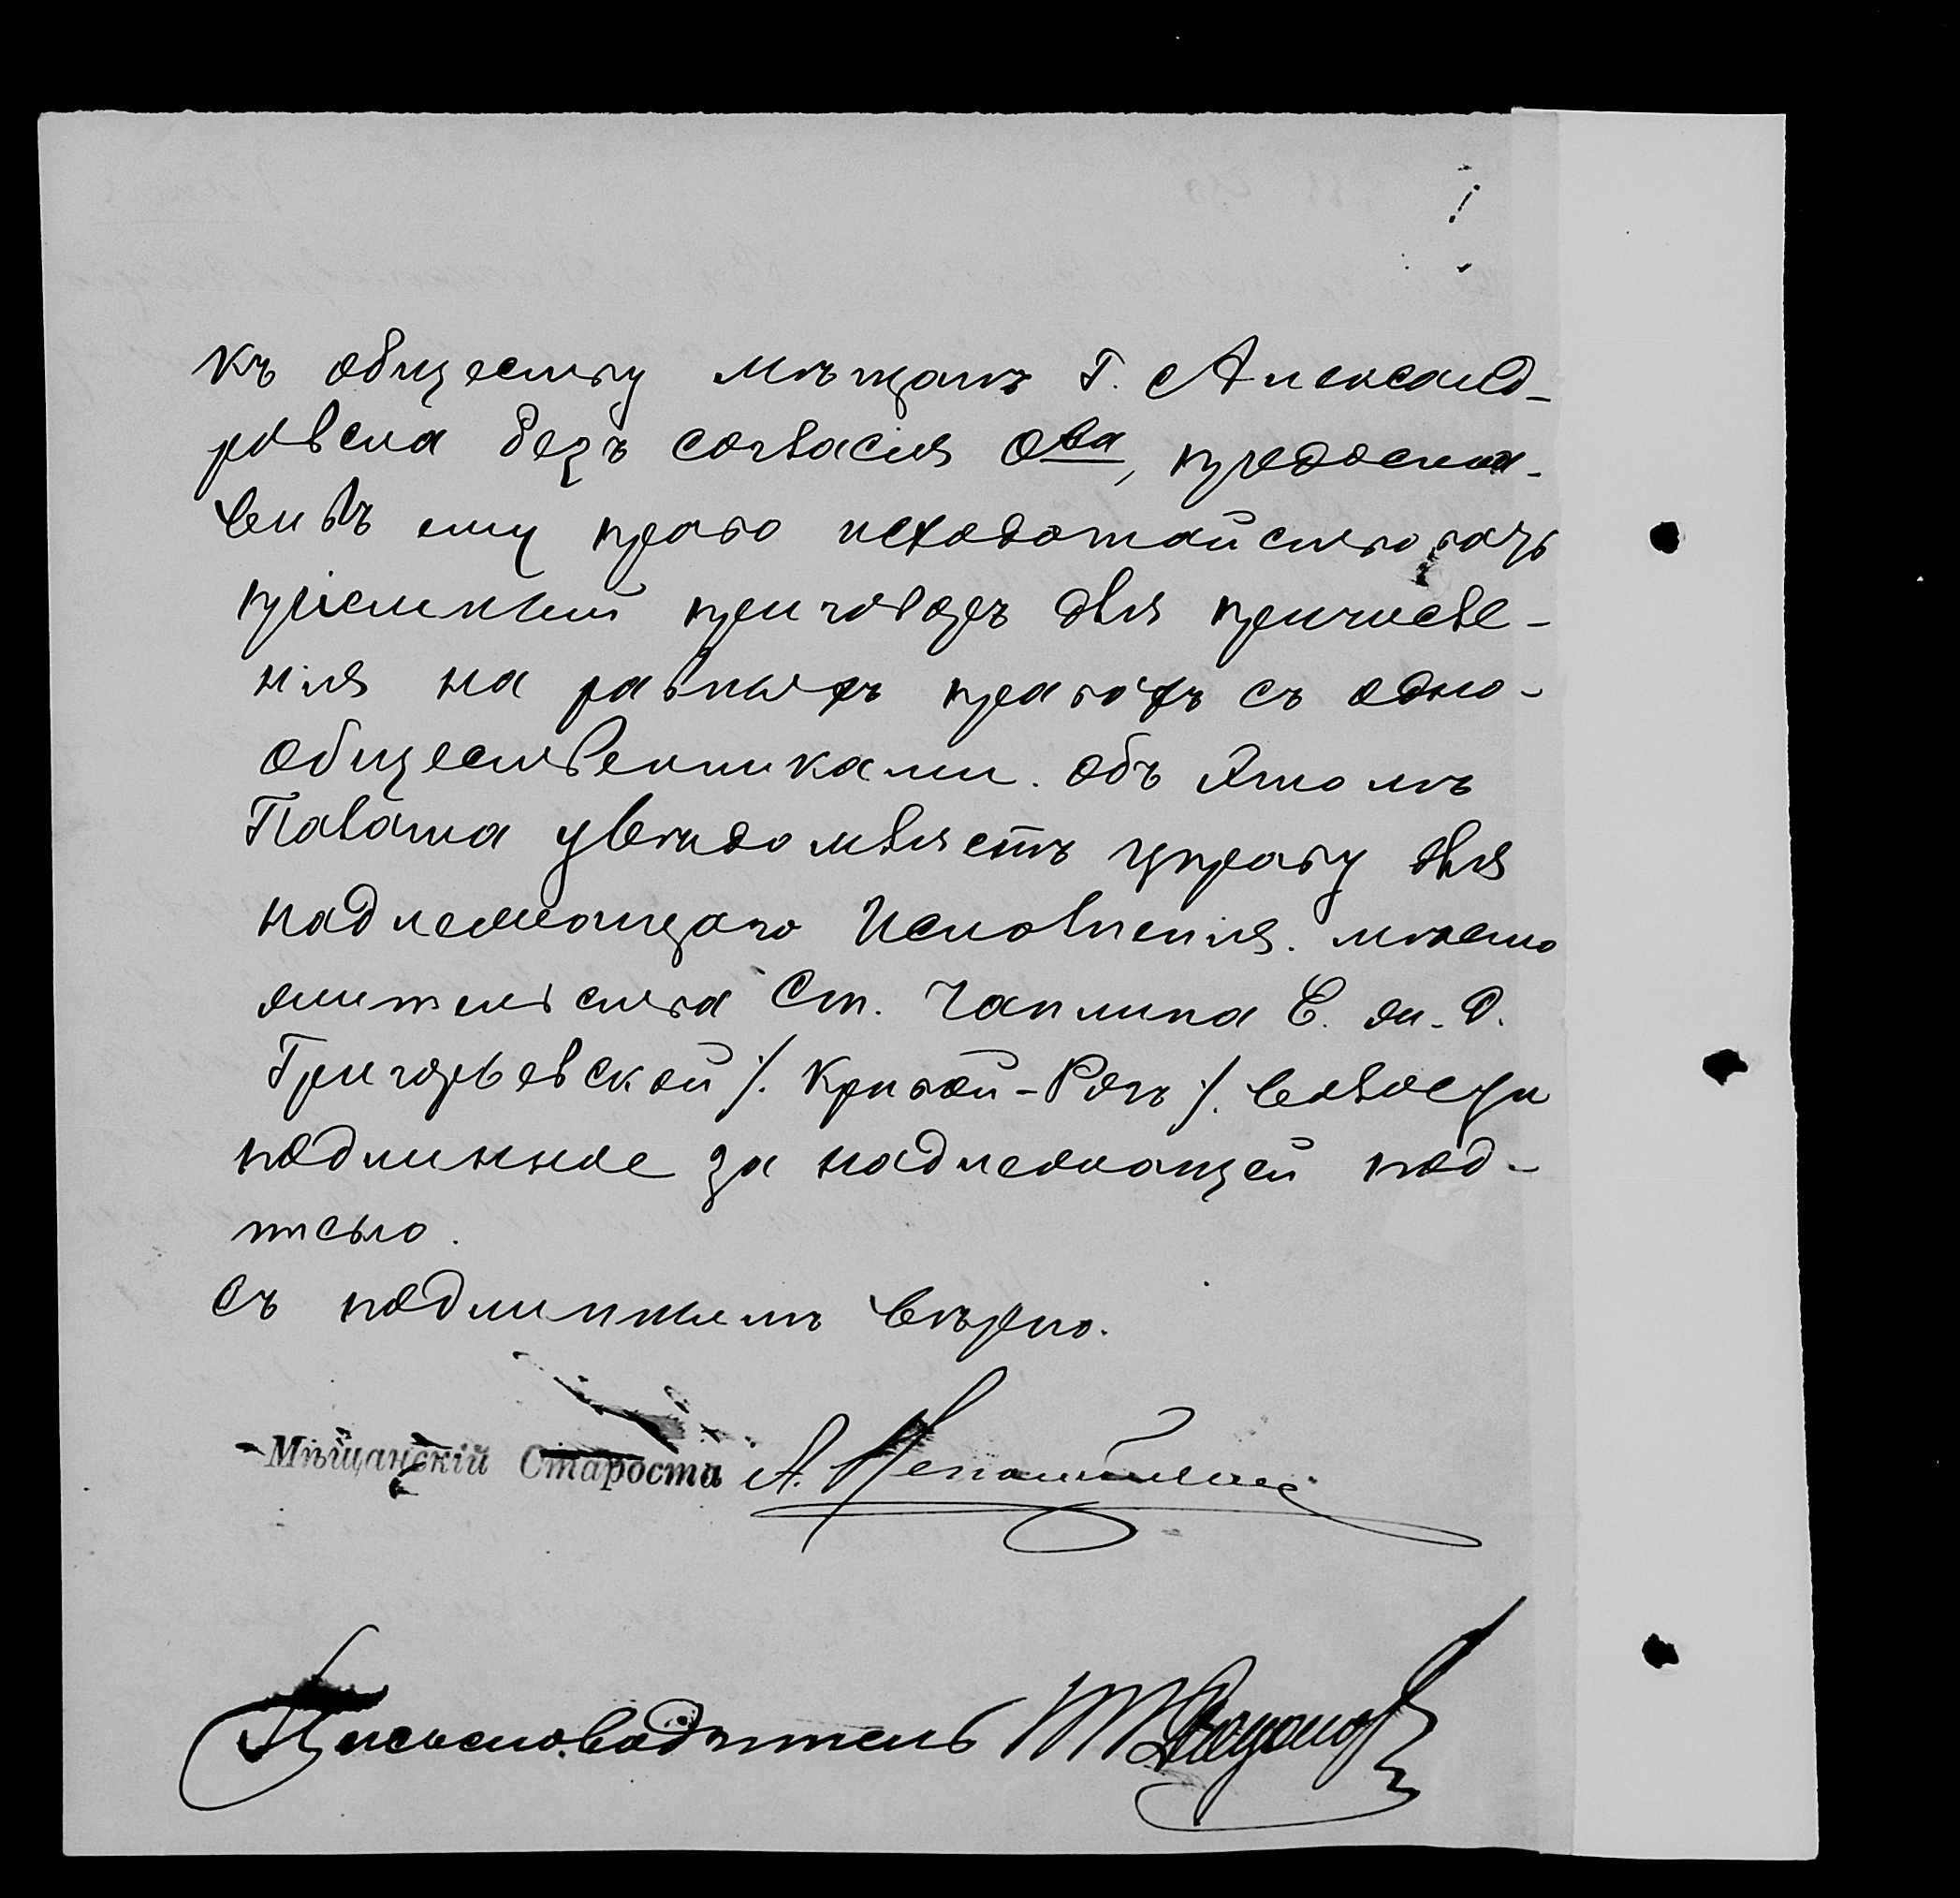 къ обществу мѣщанъ г. Александ-
ровска безъ согласія О-ва, предоста-
вивъ ему право исходатайствовать
пріемный приговоръ для причисле-
нія на равныхъ правахъ съ одно-
общественниками. объ этомъ
Палата увѣдомляетъ управу для
надлежащаго исполненія. мѣсто
жительства Ст. Чаплина Е. ж. д.
Григорьевской /. Кривой-Рогъ /. волости
подлинное за надлежащей под-
писью.
Съ подлиннымъ вѣрно.
Мѣщанскій Староста А.
Письмоводитель